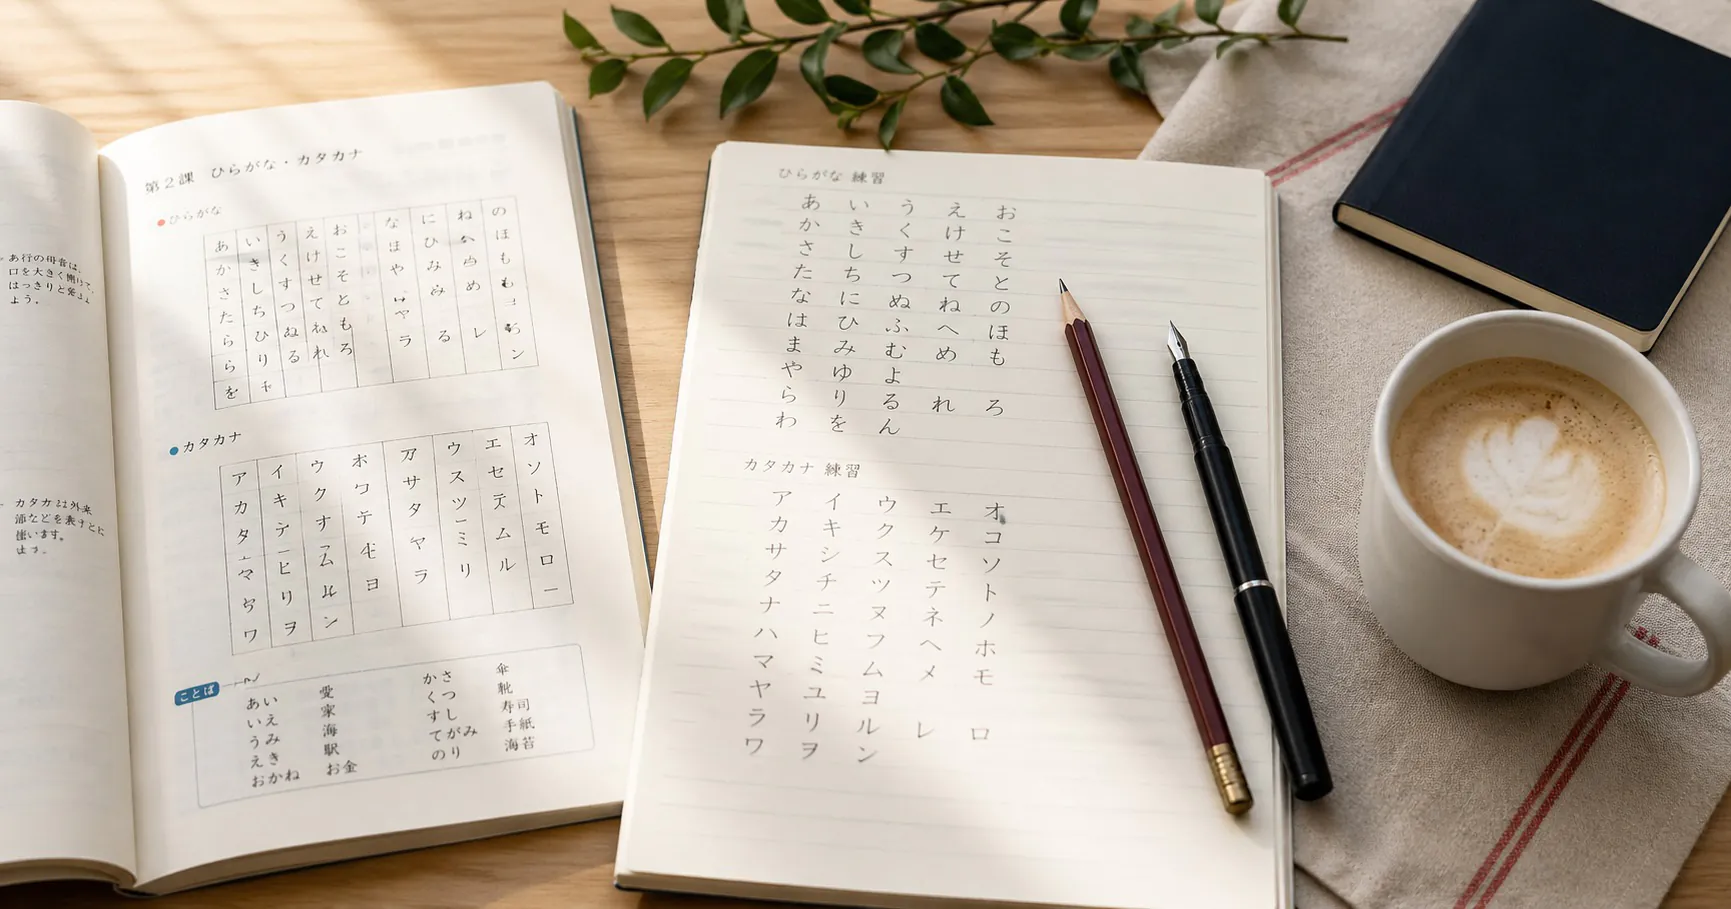 第2課 ひらがな・カタカナ
ひらがな
あ い う え お な に ね の
か き く け こ ほ ひ ほ
さ し す せ そ や み も
た ち つ て と め
ら ひ ぬ ね も ラ る レ
ら り る れ ろ ン
を
カタカナ
ア イ ウ ホ ア ウ エ オ
カ キ ク サ ス セ ソ
タ テ タ ツ テ ト
ヤ ミ ム モ
マ ヒ ム ヨ ラ リ ル ロ
リ ー
ワ ヲ ン
ことば
あい 愛 かさ 傘
いえ 家 くつ 靴
うみ 海 すし 寿司
えき 駅 てがみ 手紙
おかね お金 のり 海苔
あ行の母音は、
口を大きく
はっきりと
よう。
カタカ は外来
などを表すとに
使います。
ます。
ひらがな 練習
あ い う え お
か き く け こ
さ し す せ そ
た ち つ て と
な に ぬ ね の
は ひ ふ へ ほ
ま み む め も
や ゆ よ
ら り る れ ろ
わ を ん
カタカナ 練習
ア イ ウ エ オ
カ キ ク ケ コ
サ シ ス セ ソ
タ チ ツ テ ト
ナ ニ ヌ ネ ノ
ハ ヒ フ ヘ ホ
マ ミ ム メ モ
ヤ ユ ヨ
ラ リ ル レ ロ
ワ ヲ ン